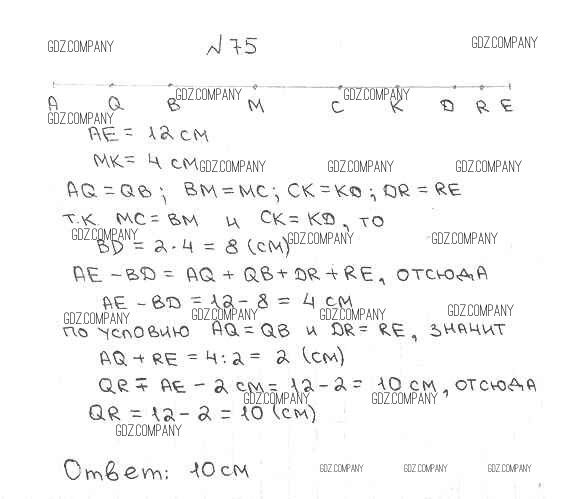 GDZ.COMPANY
№75
GDZ.COMPANY
GDZ.COMPANY
GDZ.COMPANY
A Q B M C K D R E
GDZ.COMPANY
AE = 12 см
MK = 4 см
GDZ.COMPANY
GDZ.COMPANY
GDZ.COMPANY
AQ = QB; BM = MC; CK = KD; DR = RE
т.к. MC = BM и CK = KD, то
GDZ.COMPANY
BD = 2 · 4 = 8 (см)
GDZ.COMPANY
GDZ.COMPANY
AE - BD = AQ + QB + DR + RE, отсюда
AE - BD = 12 - 8 = 4 см
GDZ.COMPANY
GDZ.COMPANY
GDZ.COMPANY
GDZ.COMPANY
по условию AQ = QB и DR = RE, значит
AQ + RE = 4 : 2 = 2 (см)
QR = AE - 2 см = 12 - 2 = 10 см, отсюда
GDZ.COMPANY
GDZ.COMPANY
QR = 12 - 2 = 10 (см)
GDZ.COMPANY
Ответ: 10 см
GDZ.COMPANY
GDZ.COMPANY
GDZ.COMPANY